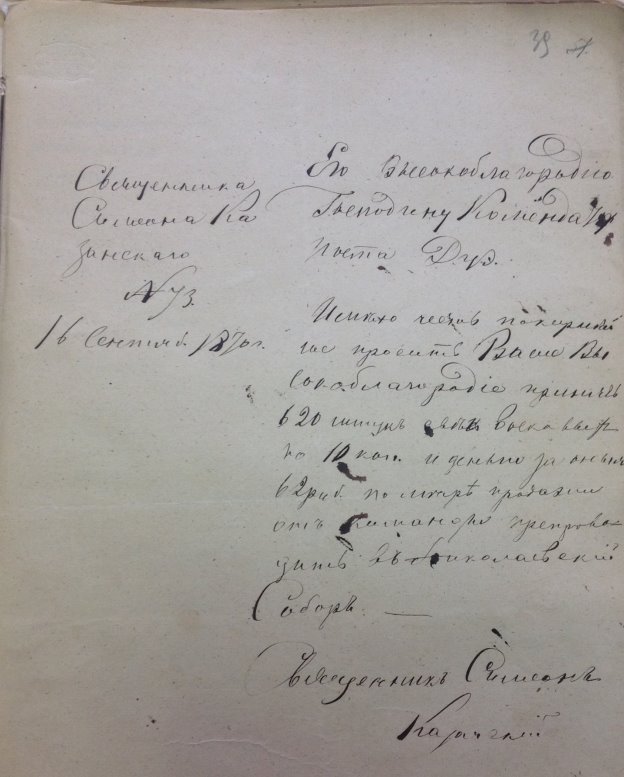 39
Священника
Симеона Ка
занскаго
№ 73.
16 Сентяб. 1870 г.
Его Высокоблагородію
Господину Коменданту
поста Дуэ.
Имѣю честь покорнѣй
ше просить Ваше Вы
сокоблагородіе принять
620 штукъ свѣчь восковыхъ
по 10 коп. и деньги за оныя
62 руб. по мѣрѣ продажи
отъ команды препрово-
дить въ Николаевскій
Соборъ. —
Священникъ Симеонъ
Казанскій